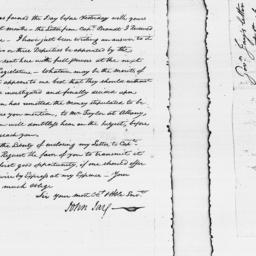 found the Day before Yesterday with yours
month - the Letter from Capt. Brandt I received
I have just been writing an answer to it
or three Deputies be appointed by the
sent here with full powers at the next
Legislature - Whatever may be the merits of
it appears to me best that they should without
investigated and finally decided upon
has remitted the money stipulated to be
you mention, to Mr. Taylor at Albany,
will doubtless hear on the subject, before
reach you.
the Liberty of enclosing my Letter to Capt.
Request the favor of you to transmit it
first good opportunity, if one should offer
by Express at my Expence - You
much oblige
Sir your most Obt. & Hble Servt.
John Jay